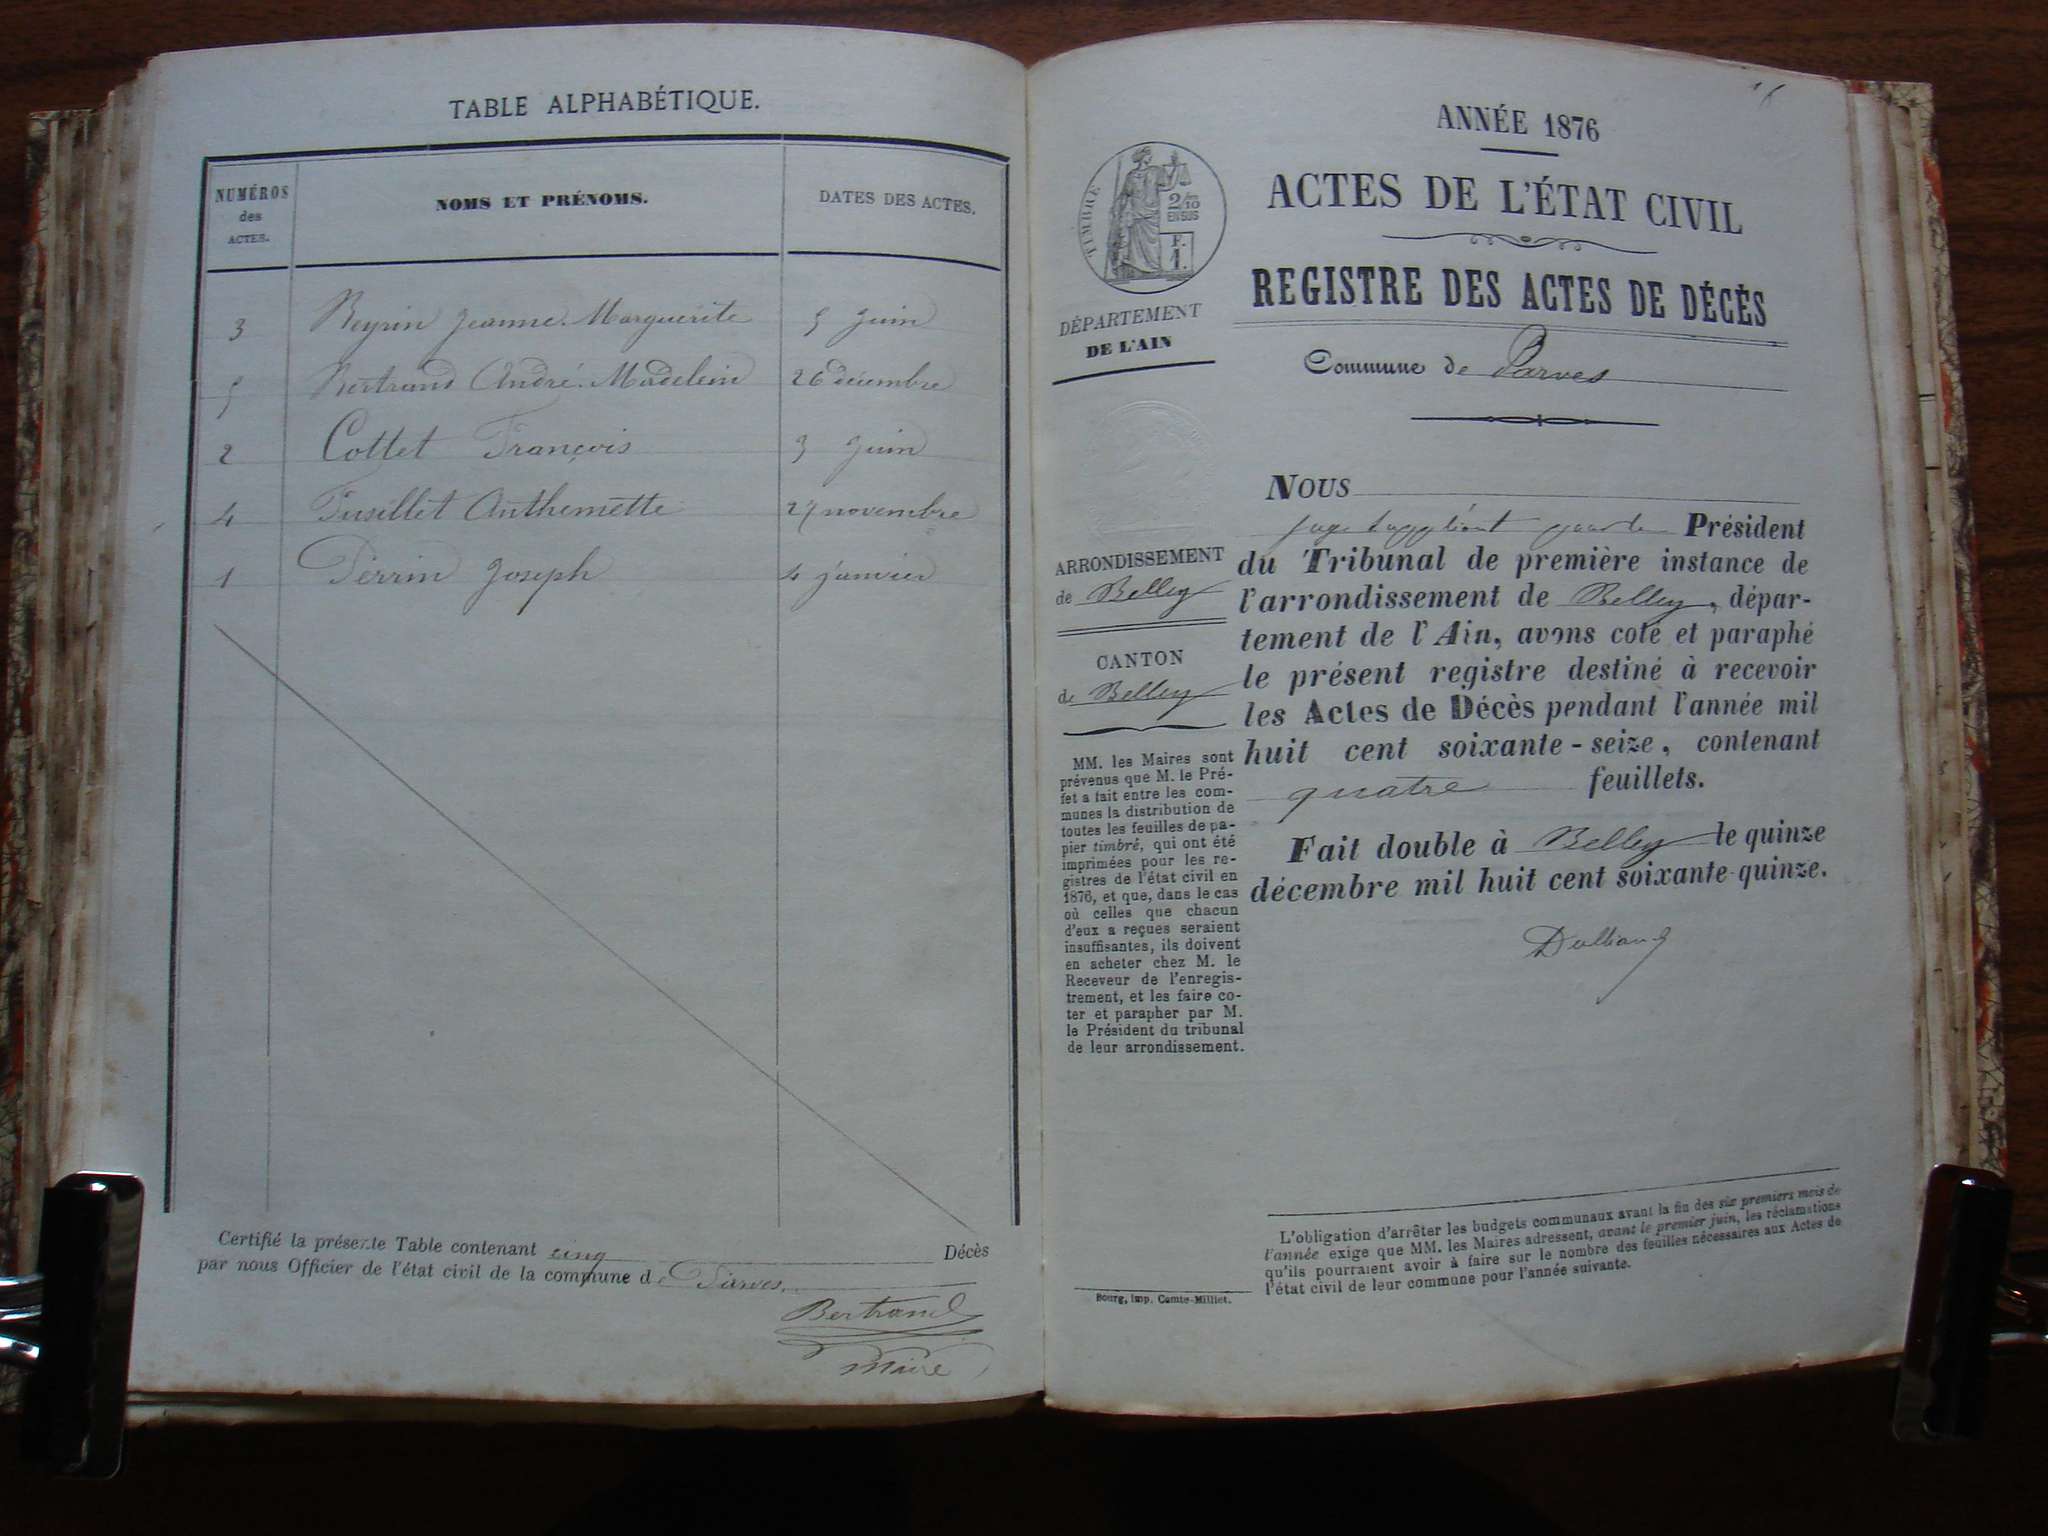 TABLE ALPHABÉTIQUE.
NUMÉROS des ACTES. NOMS ET PRÉNOMS. DATES DES ACTES.
3 Beyrin Jeanne Marguerite 5 Juin
5 Bertrand André Madelein 26 décembre
2 Cottet François 3 Juin
4 Fusillet Anthemette 27 novembre
1 Perrin Joseph 4 janvier
Certifié la présente Table contenant cinq Décès
par nous Officier de l'état civil de la commune de Parves.
Bertrand
Maire
16
ANNÉE 1876
ACTES DE L'ÉTAT CIVIL
REGISTRE DES ACTES DE DÉCÈS
Commune de Parves
TIMBRE
2/10
EN SUS
F.
1.
DÉPARTEMENT
DE L'AIN
ARRONDISSEMENT
de Belley
CANTON
de Belley
MM. les Maires sont
prévenus que M. le Pré-
fet a fait entre les com-
munes la distribution de
toutes les feuilles de pa-
pier timbré, qui ont été
imprimées pour les re-
gistres de l'état civil en
1876, et que, dans le cas
où celles que chacun
d'eux a reçues seraient
insuffisantes, ils doivent
en acheter chez M. le
Receveur de l'enregis-
trement, et les faire co-
ter et parapher par M.
le Président du tribunal
de leur arrondissement.
NOUS
juge suppléant Président
du Tribunal de première instance de
l'arrondissement de Belley, dépar-
tement de l'Ain, avons coté et paraphé
le présent registre destiné à recevoir
les Actes de Décès pendant l'année mil
huit cent soixante-seize, contenant
quatre feuillets.
Fait double à Belley le quinze
décembre mil huit cent soixante-quinze.
L'obligation d'arrêter les budgets communaux avant la fin des six premiers mois de
l'année exige que MM. les Maires adressent, avant le premier juin, les réclamations
qu'ils pourraient avoir à faire sur le nombre des feuilles nécessaires aux Actes de
l'état civil de leur commune pour l'année suivante.
Bourg, imp. Comte-Milliet.